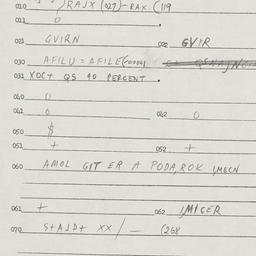 010 )RAJX (027)-RAX (119
011 0
021 GVIRN 022 GVIR
030 AFILU = AFILE(
031 XOCT QS 90 PERCENT .
040 0
041 0 042 0
050 $
051 + 052 +
060 AMOL GIT ER A PODA,ROK IMECN
061 + 062 IMICER
070 S+AJD+ XX/- (268